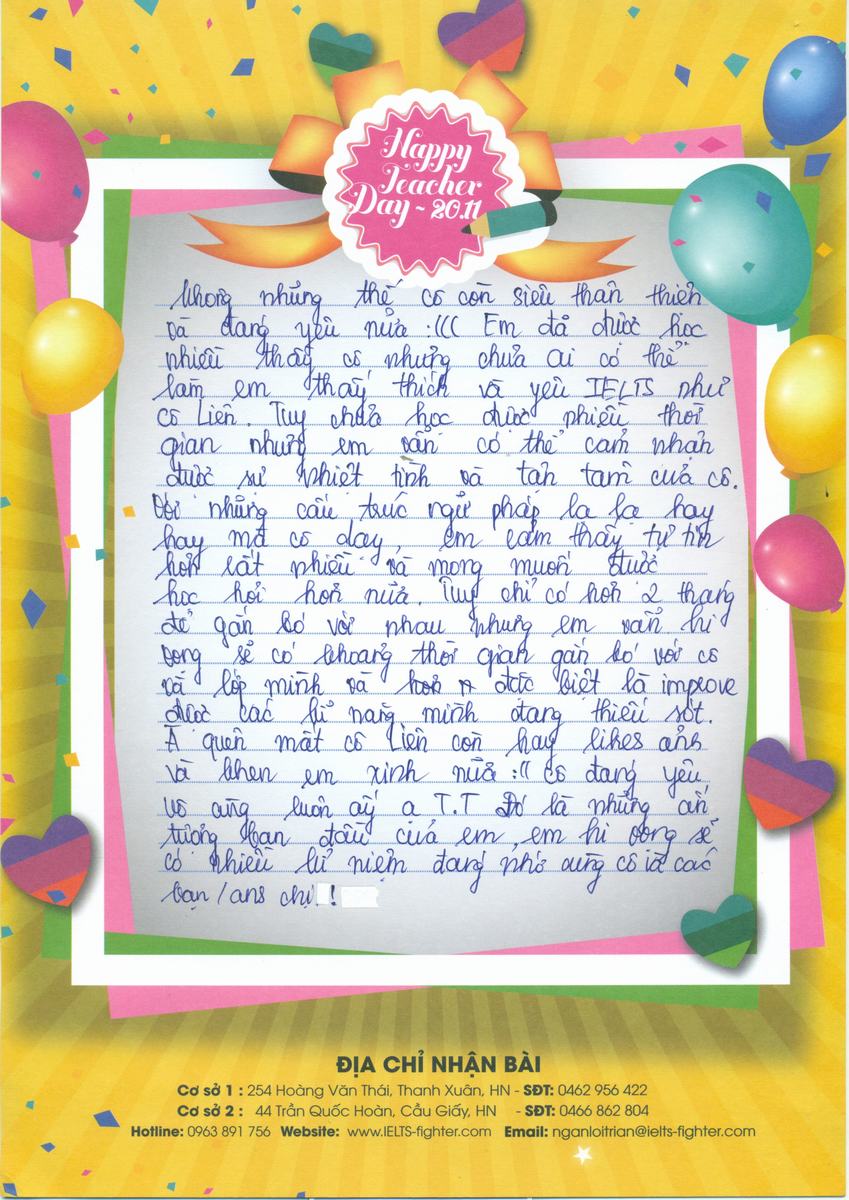 Happy
Teacher
Day ~ 20.11
Không những thế cô còn siêu thân thiện
và đáng yêu nữa :((( Em đã được học
nhiều thầy cô nhưng chưa ai có thể
làm em thấy thích và yêu IELTS như
cô Liên. Tuy chưa học được nhiều thời
gian nhưng em vẫn có thể cảm nhận
được sự nhiệt tình và tận tâm của cô.
Với những cấu trúc ngữ pháp lạ lạ hay
hay mà cô dạy, em cảm thấy tự tin
hơn rất nhiều và mong muốn được
học hỏi hơn nữa. Tuy chỉ có hơn 2 tháng
để gắn bó với nhau nhưng em vẫn hi
vọng sẽ có khoảng thời gian gắn bó với cô
và lớp mình và đặc biệt là improve
được các kĩ năng mình đang thiếu sót.
À quên mất cô Liên còn hay likes ảnh
và khen em xinh nữa :(( cô đáng yêu
vô cùng luôn ấy ạ T.T Đó là những ấn
tượng ban đầu của em, em hi vọng sẽ
có nhiều kỉ niệm đáng nhớ cùng cô và các
bạn / anh chị !
ĐỊA CHỈ NHẬN BÀI
Cơ sở 1 : 254 Hoàng Văn Thái, Thanh Xuân, HN - SĐT: 0462 956 422
Cơ sở 2 : 44 Trần Quốc Hoàn, Cầu Giấy, HN - SĐT: 0466 862 804
Hotline: 0963 891 756 Website: www.IELTS-fighter.com Email: nganloitrian@ielts-fighter.com